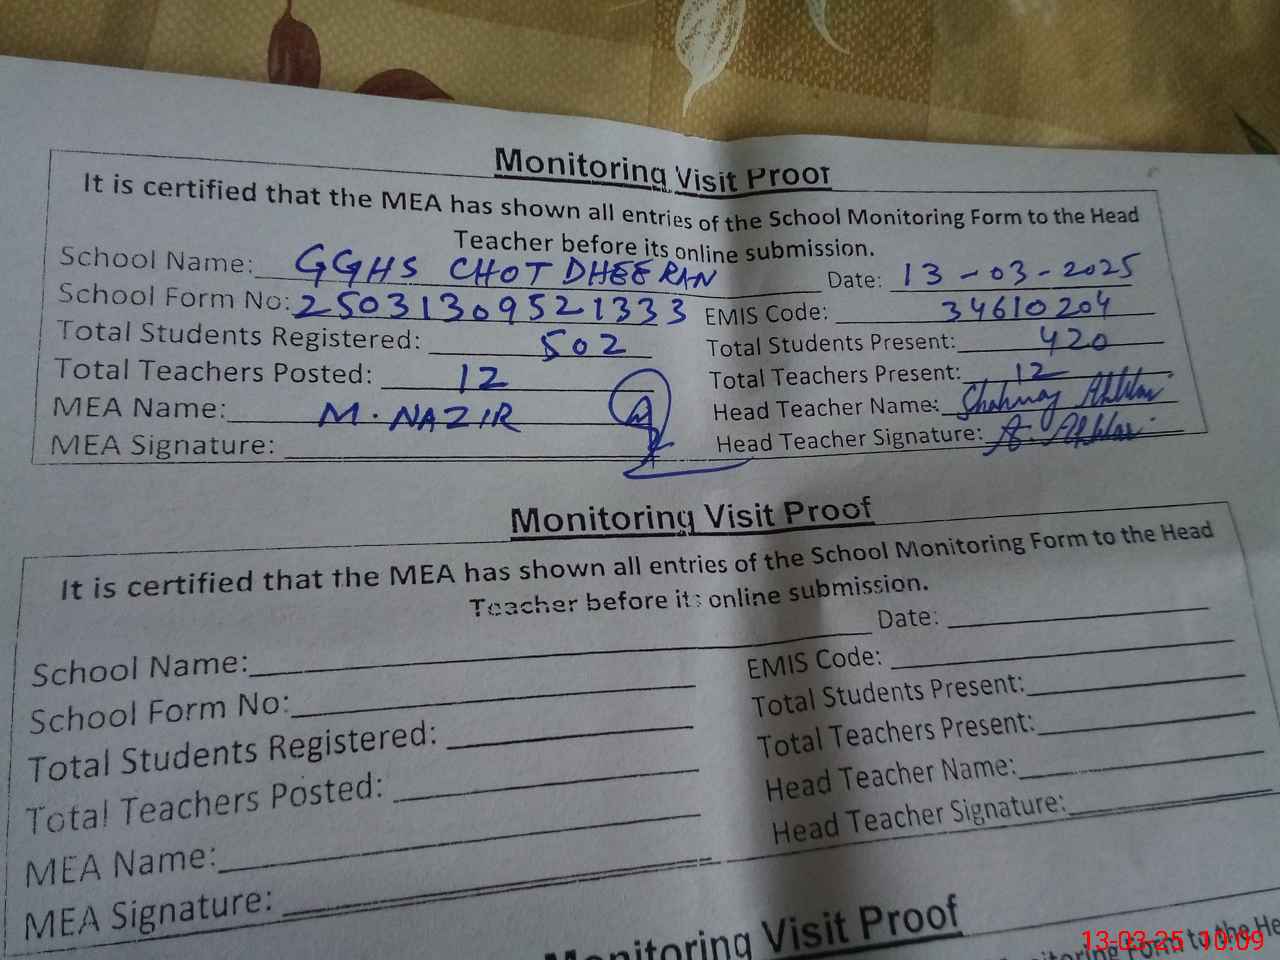 Monitoring Visit Proof
It is certified that the MEA has shown all entries of the School Monitoring Form to the Head
Teacher before its online submission.
School Name: GGHS CHOT DHEERAN Date: 13-03-2025
School Form No: 25031309521333 EMIS Code: 34610204
Total Students Registered: 502 Total Students Present: 420
Total Teachers Posted: 12 Total Teachers Present: 12
MEA Name: M. NAZIR Head Teacher Name: Shahnaz Akhtar
MEA Signature: Head Teacher Signature: S. Akhtar
Monitoring Visit Proof
It is certified that the MEA has shown all entries of the School Monitoring Form to the Head
Teacher before its online submission.
School Name: Date:
School Form No: EMIS Code:
Total Students Registered: Total Students Present:
Total Teachers Posted: Total Teachers Present:
MEA Name: Head Teacher Name:
MEA Signature: Head Teacher Signature:
Monitoring Visit Proof
Form to the He
13-03-25 10:09